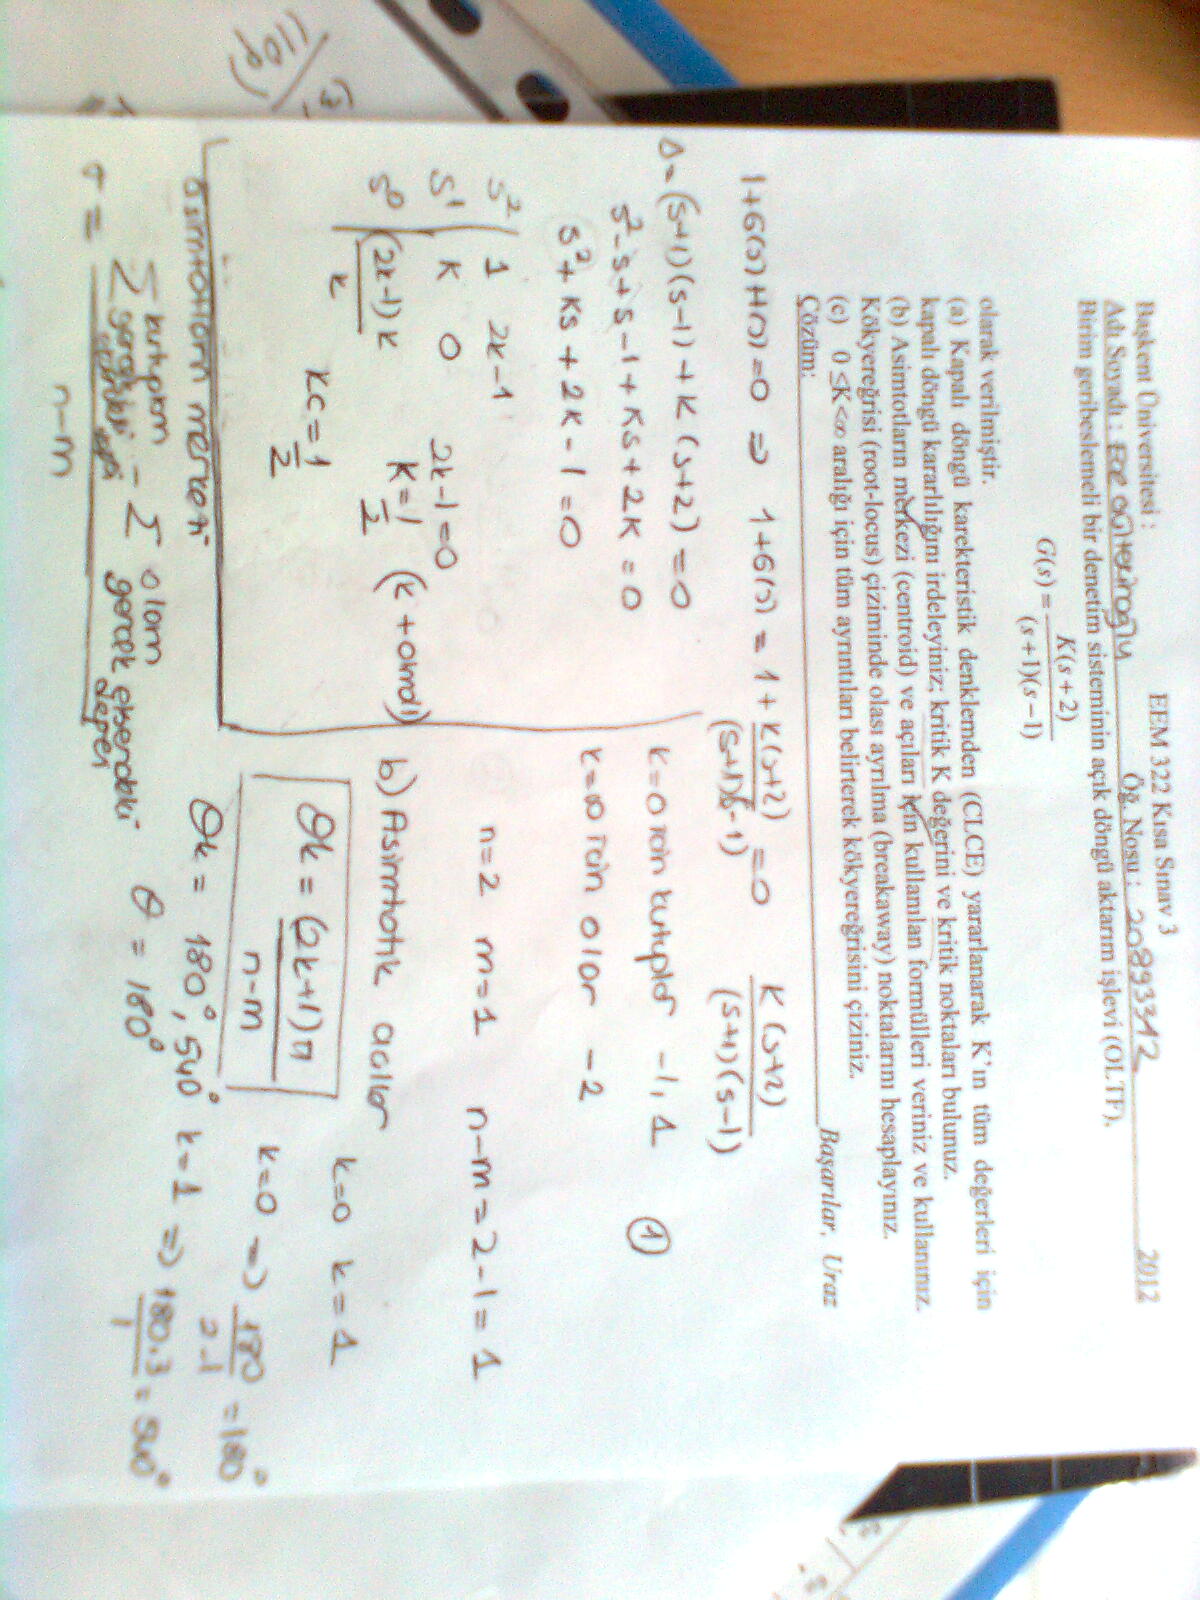 Başkent Üniversitesi :
EEM 322 Kısa Sınav 3
2012
Adı Soyadı :
Öğ. Nosu : 20893312
Birim geribeslemeli bir denetim sisteminin açık döngü aktarım işlevi (OLTF).
G(s) = K(s+2) / (s+1)(s-1)
olarak verilmiştir.
(a) Kapalı döngü karekteristik denklemden (CLCE) yararlanarak K'ın tüm değerleri için
kapalı döngü kararlılığını irdeleyiniz; kritik K değerini ve kritik noktaları bulunuz.
(b) Asimtotların merkezi (centroid) ve açıları için kullanılan formülleri veriniz ve kullanınız.
Kökyereğrisi (root-locus) çiziminde olası ayrılma (breakaway) noktalarını hesaplayınız.
(c) 0 ≤K<∞ aralığı için tüm ayrıntıları belirterek kökyereğrisini çiziniz.
Çözüm:
Başarılar, Uraz
1+G(s)H(s)=0 ⇒ 1+G(s) = 1 + K(s+2) / (s+1)(s-1) = 0
K(s+2) / (s+1)(s-1)
Δ = (s+1)(s-1) + K(s+2) = 0
s²-s+s-1+Ks+2K=0
s²+Ks+2K-1=0
s² 1 2K-1
s¹ K 0
s⁰ (2K-1)K / K
2K-1=0
K=1/2 (K+ önemli)
Kc=1/2
K=0 için kutuplar -1, 1
①
K=∞ için olar -2
n=2 m=1 n-m=2-1=1
b) Asimtotik açılar
θk = (2k+1)π / n-m
k=0 k=1
k=0 ⇒ 180 / 2-1 = 180°
θk = 180°, 540°
k=1 ⇒ 180.3 / 1 = 540°
θ = 180°
asimtotların merkezi
σ = Σ kutupların - Σ olarn gerçek eksendeki değeri / n-m
(10p)